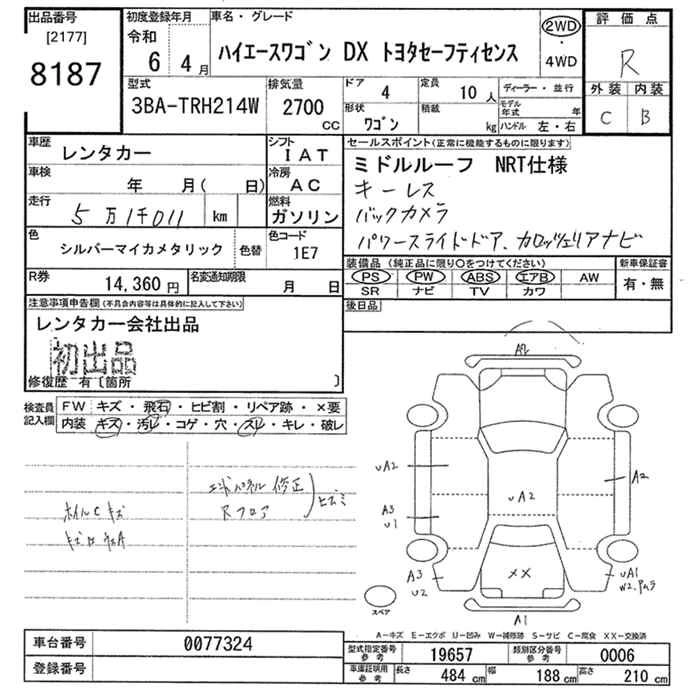 出品番号
[2177]
8187
初度登録年月
令和
6 4月
車名・グレード
ハイエースワゴン DX トヨタセーフティセンス
2WD
・
4WD
評価点
R
外装 内装
C B
型式
3BA-TRH214W
排気量
2700 CC
ドア 4
形状 ワゴン
定員 10 人
積載 kg
ディーラー・並行
モデル年式 年
ハンドル 左・右
車歴 レンタカー
シフト IAT
車検 年 月( 日)
冷房 AC
走行 5万1千011 km
燃料 ガソリン
色 シルバーマイカメタリック 色替
色コード 1E7
R券 14,360円
名変通知期限 月 日
セールスポイント(正常に機能するものに限ります)
ミドルルーフ NRT仕様
キーレス
バックカメラ
パワースライドドア、カロッツェリアナビ
装備品(純正品に限り○をつけてください)
PS PW ABS エアB AW
SR ナビ TV カワ
新車保証書
有・無
後日品
注意事項申告欄(不具合内容等は具体的に記入して下さい)
レンタカー会社出品
初出品
修復歴 有〔箇所 〕
検査員記入欄
FW キズ・飛石・ヒビ割・リペア跡・×要
内装 キズ・汚レ・コゲ・穴・スレ・キレ・破レ
エンドパネル 修正
Rフロア
ヒズミ
ホイルCキズ
A2
UA2
A3
U1
UA2
A2
A3
U2
××
UA1
A1
スペア
A-キズ E-エクボ U-凹み W-補修跡 S-サビ C-腐食 XX-交換済
車台番号 0077324
登録番号
型式指定番号 参考 19657
類別区分番号 参考 0006
車庫証明用 参考 長さ 484 cm 幅 188 cm 高さ 210 cm